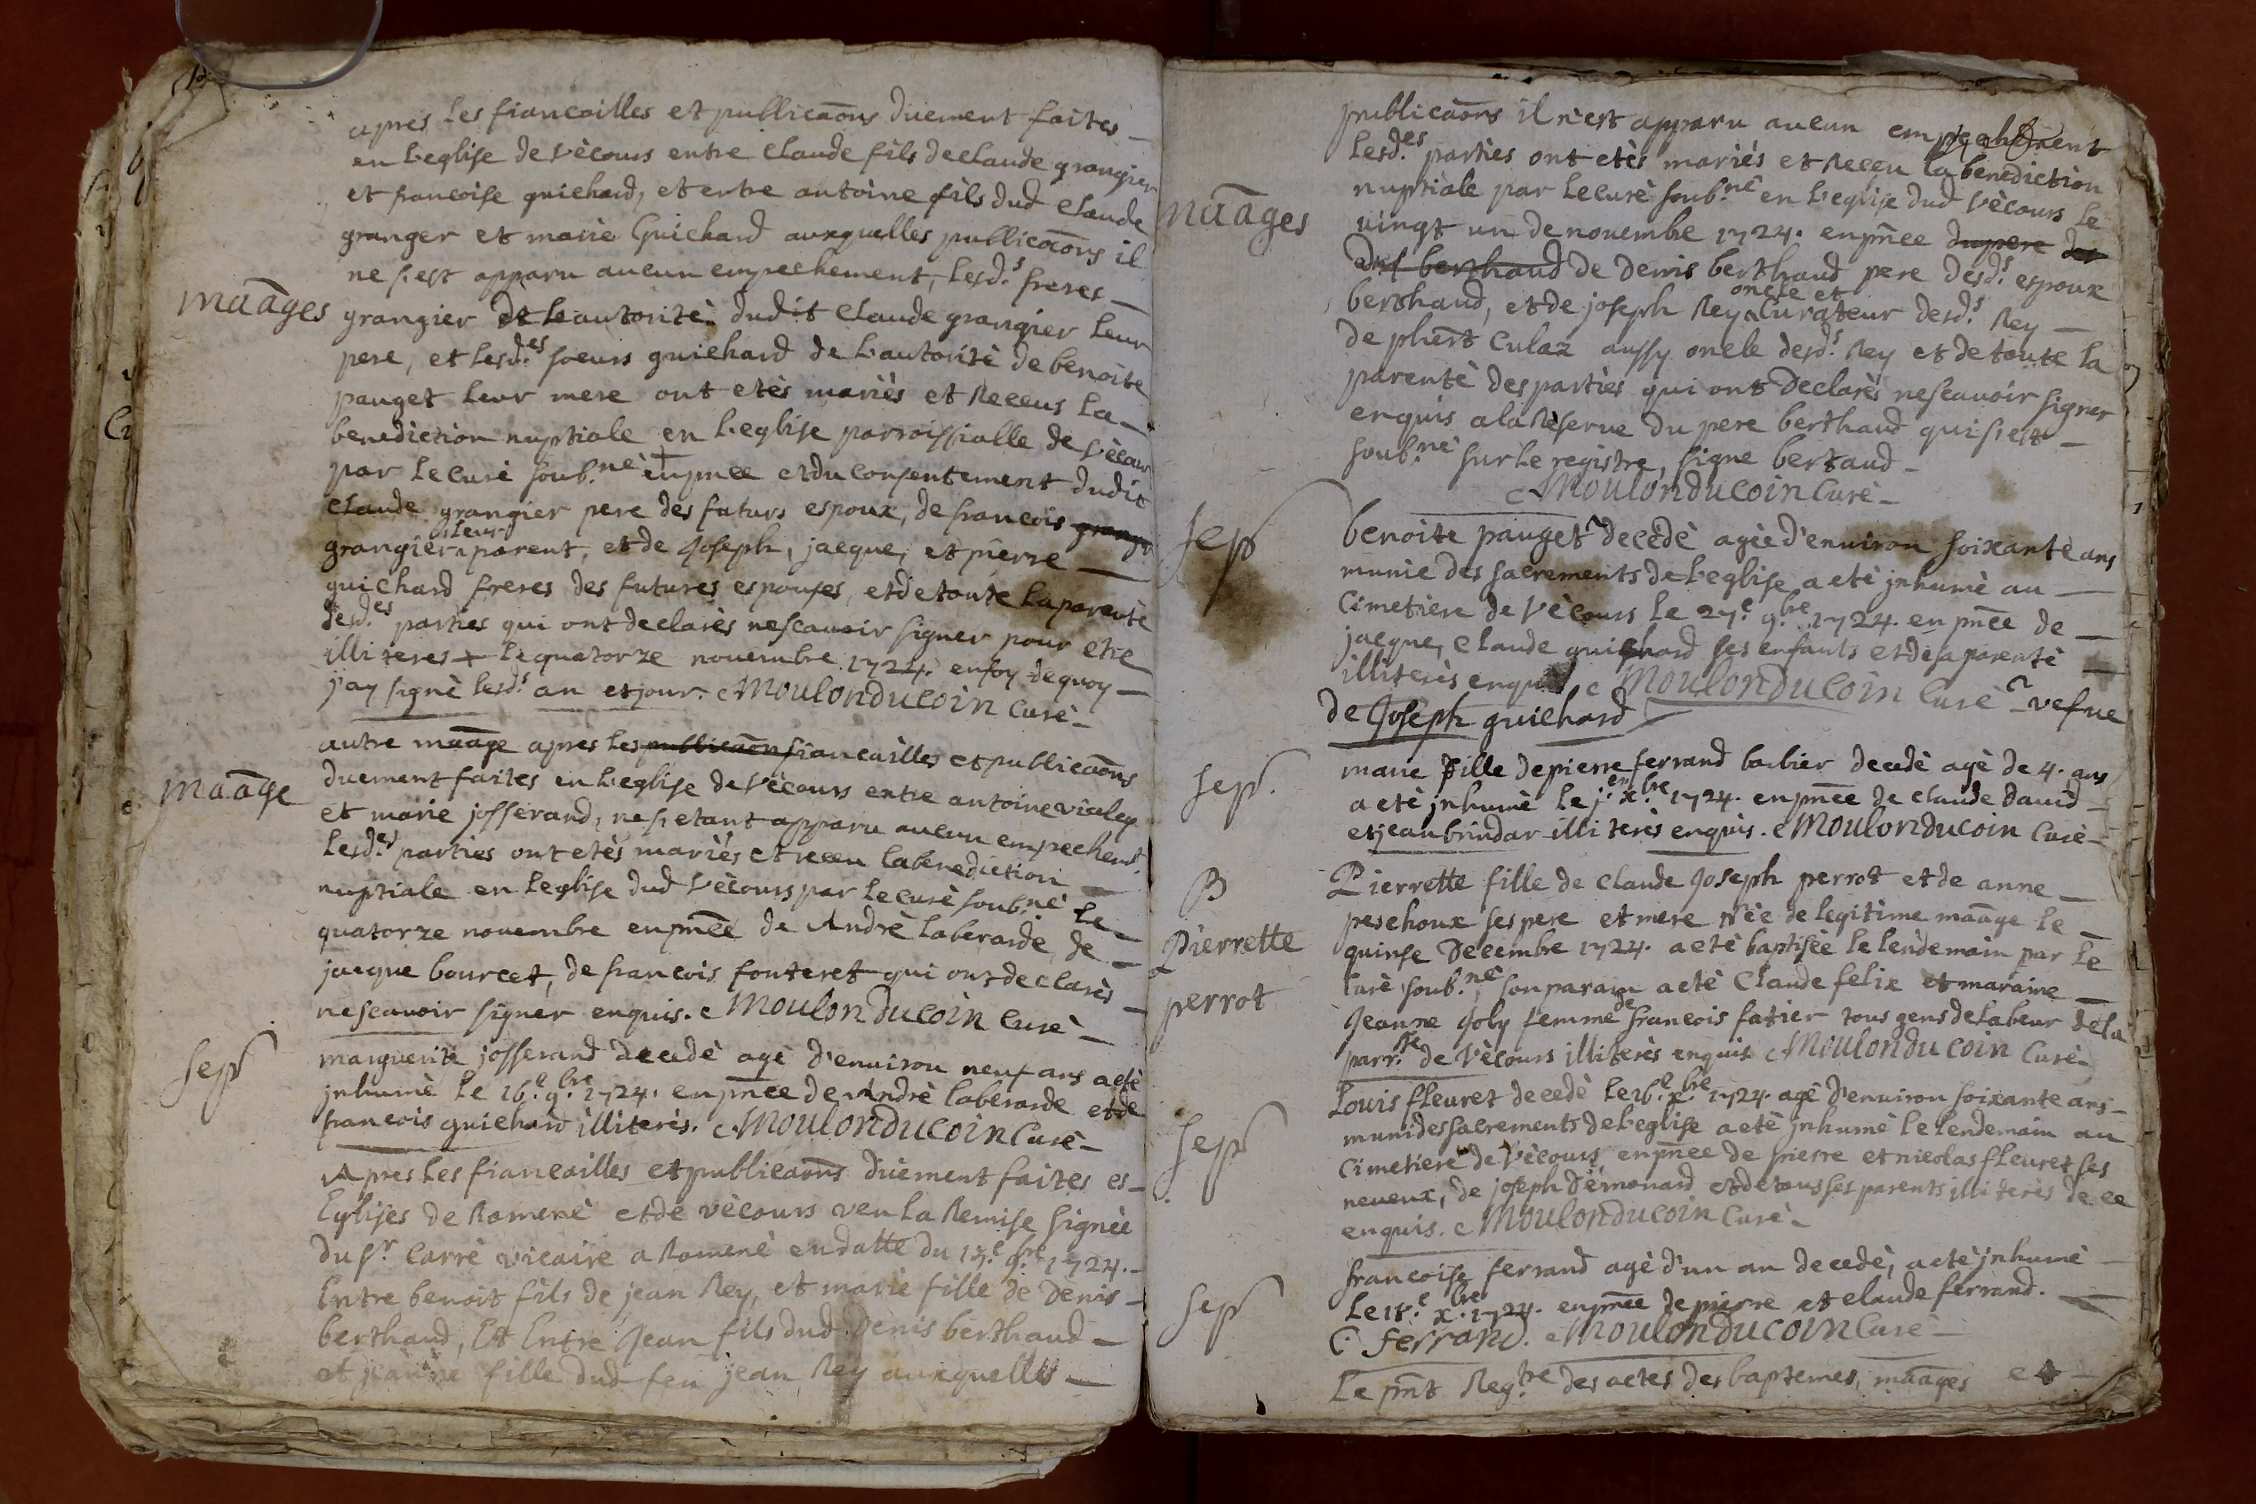 apres les fiancailles et publicaõns duement faites
en l'eglise de vècours entre claude fils de claude grangier
et francoise guichard, et entre antoine fils dud claude
granger et marie Guichard auxquelles publicaõns il
ne s'est apparu aucun empechement, lesd.s freres
maãges
grangier de l'autoritè dudit claude grangier leur
pere, et lesd.es soeurs guichard de l'autoritè de benoite
pauget leur mere ont etès mariès et Receus la
benediction nuptiale en l'eglise parroissialle de vècours
par le curè soub.nè en pnce et du consentement dudit
claude grangier pere des futurs espoux, de francois
grangier leur parent, et de Joseph, jacque, et pierre
guichard freres des futures espouses, et de toute la parentè
desd.es parties qui ont declarès ne scavoir signer pour etre
illiteres + le quatorze novembre 1724. en foy de quoy
j'ay signè lesd.s an et jour. Moulonducoin Curè
autre maãge apres les publicaõns fiancailles et publicaõns
maãge
duement faites en l'eglise de vècours entre antoine
et marie josserand, ne s'etant apparu aucun empechem.t
lesd.es parties ont etès mariès et receu la benediction
nuptiale en l'eglise dud vècours par le curè soub.nè le
quatorze novembre en pnẽe de Andrè laberarde, de
jacque bourcet, de francois fonteret qui ont declarès
ne scavoir signer enquis. Moulonducoin Curè
sep
marguerite josserand decedè agè d'environ neuf ans a etè
jnhumè le 16.e 9.bre 1724. en pnẽe de Andrè laberarde et de
francois guichard illiterès. Moulonducoin Curè
Apres les fiancailles et publicaõns dùement faites es
Eglises de Romenè et de vècours veu la Remise signèe
du s.r Carrè vicaire a Romenè en datte du 9.bre 1724.
Entre benoit fils de jean Rey, et marie fille de Denis
berthaud, Et Entre Jean fils dud Denis berthaud
et jeanne fille dud feu jean Rey auxquelles
publicaõns il n'est apparu aucun empechement
lesd.es parties ont etès mariès et Receu la benediction
maãges
nuptiale par le curè soub.nè en l'eglise dud vècours le
vingt un de novembre 1724. en pnẽe du pere des
berthaud de Denis berthaud pere desd.s espoux
berthaud, et de joseph Rey oncle et Curateur desd.s Rey
de phert Culaz aussy oncle desd.s Rey et de toute la
parentè des parties qui ont Declarès ne scavoir signer
enquis a la Rèserve du pere berthaud qui s'est
soub.nè sur le registre, signe bertaud
Moulonducoin Curè
sep
benoite pauget decedè agèe d'environ soixante ans
munie des sacrements de l'eglise a etè jnhumè au
Cimetiere de vècours le 27.e 9.bre 1724. en pnẽe de
jacque, claude guichard ses enfants et de sa parentè
illiterès enquis Moulonducoin Curè vefve
de Joseph guichard
sep.
marie fille de pierre ferrand barbier decedè agè de 4. ans
a etè jnhumè le j.er x.bre 1724. en pnẽe de claude david
et jean brindar illiterès enquis. Moulonducoin Curè
B
Pierrette
perrot
Pierrette fille de claude Joseph perrot et de anne
peschoux ses pere et mere Nèe de legitime maãge le
quinse Decembre 1724. a etè baptisèe le lendemain par le
curè soub.nè, son parain a etè Claude felix et maraine
Jeanne Joly femme de francois fatier tous gens de labeur de la
parr.se de vècours illiterès enquis Moulonducoin Curè
sep
Louis fleuret decedè le 16.e x.bre 1724. agè d'environ soixante ans
muni des sacrements de l'eglise a etè jnhumè le lendemain au
Cimetiere de vècours en pnẽe de pierre et nicolas fleuret ses
neveux, de joseph Dèmonard et de tous ses parents illiterès de ce
enquis. Moulonducoin Curè
sep
francoise ferrand agè d'un an decedè, a etè jnhumè
le 18.e x.bre 1724. en pnẽe de pierre et claude ferrand.
C. ferrand. Moulonducoin Curè
Le pnt Reg.tre des actes des baptemes, maãges et